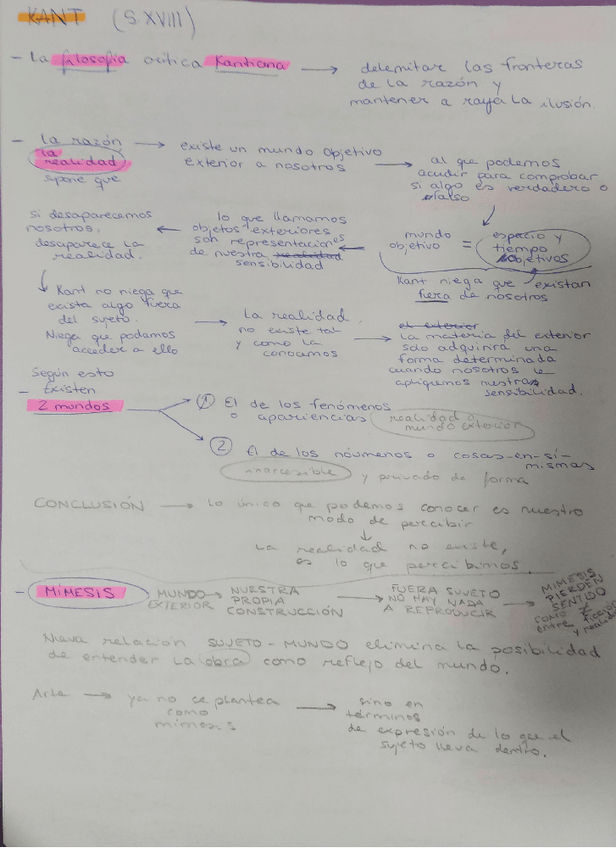 KANT (S XVIII)
- La filosofía crítica Kantiana → delimitar las fronteras
de la razón y
mantener a raya la ilusión.
- la razón → existe un mundo objetivo
la realidad exterior a nosotros → al que podemos
spone que acudir para comprobar
si algo es verdadero o
falso
mundo objetivo = espacio y
tiempo
objetivos
Kant niega que existan
fuera de nosotros
lo que llamamos
objetos exteriores
son representaciones
de nuestra realidad
sensibilidad
si desaparecemos
nosotros,
desaparece la
realidad.
Kant no niega que
exista algo fuera
del sujeto.
Niega que podamos
acceder a ello
→ la realidad
no existe tal
y como la
conocemos
→ el exterior
la materia del exterior
solo adquirirá una
forma determinada
cuando nosotros le
apliquemos nuestra
sensibilidad.
Según esto
- Existen
2 mundos
① El de los fenómenos
o apariencias (realidad o
mundo exterior)
② El de los nóumenos o cosas-en-sí-
mismas
inaccesible y privado de forma
CONCLUSIÓN → lo único que podemos conocer es nuestro
modo de percibir
↓
La realidad no existe,
es lo que percibimos.
- MÍMESIS MUNDO EXTERIOR → NUESTRA
PROPIA
CONSTRUCCIÓN
→ FUERA SUJETO
NO HAY NADA
A REPRODUCIR
→ MIMESIS
PIERDEN
SENTIDO
COMO
entre ficción
y realidad
Nueva relación SUJETO-MUNDO elimina la posibilidad
de entender la obra como reflejo del mundo.
Arte → ya no se plantea
como
mímesis
→ sino en
términos
de expresión de lo que el
sujeto lleva dentro.